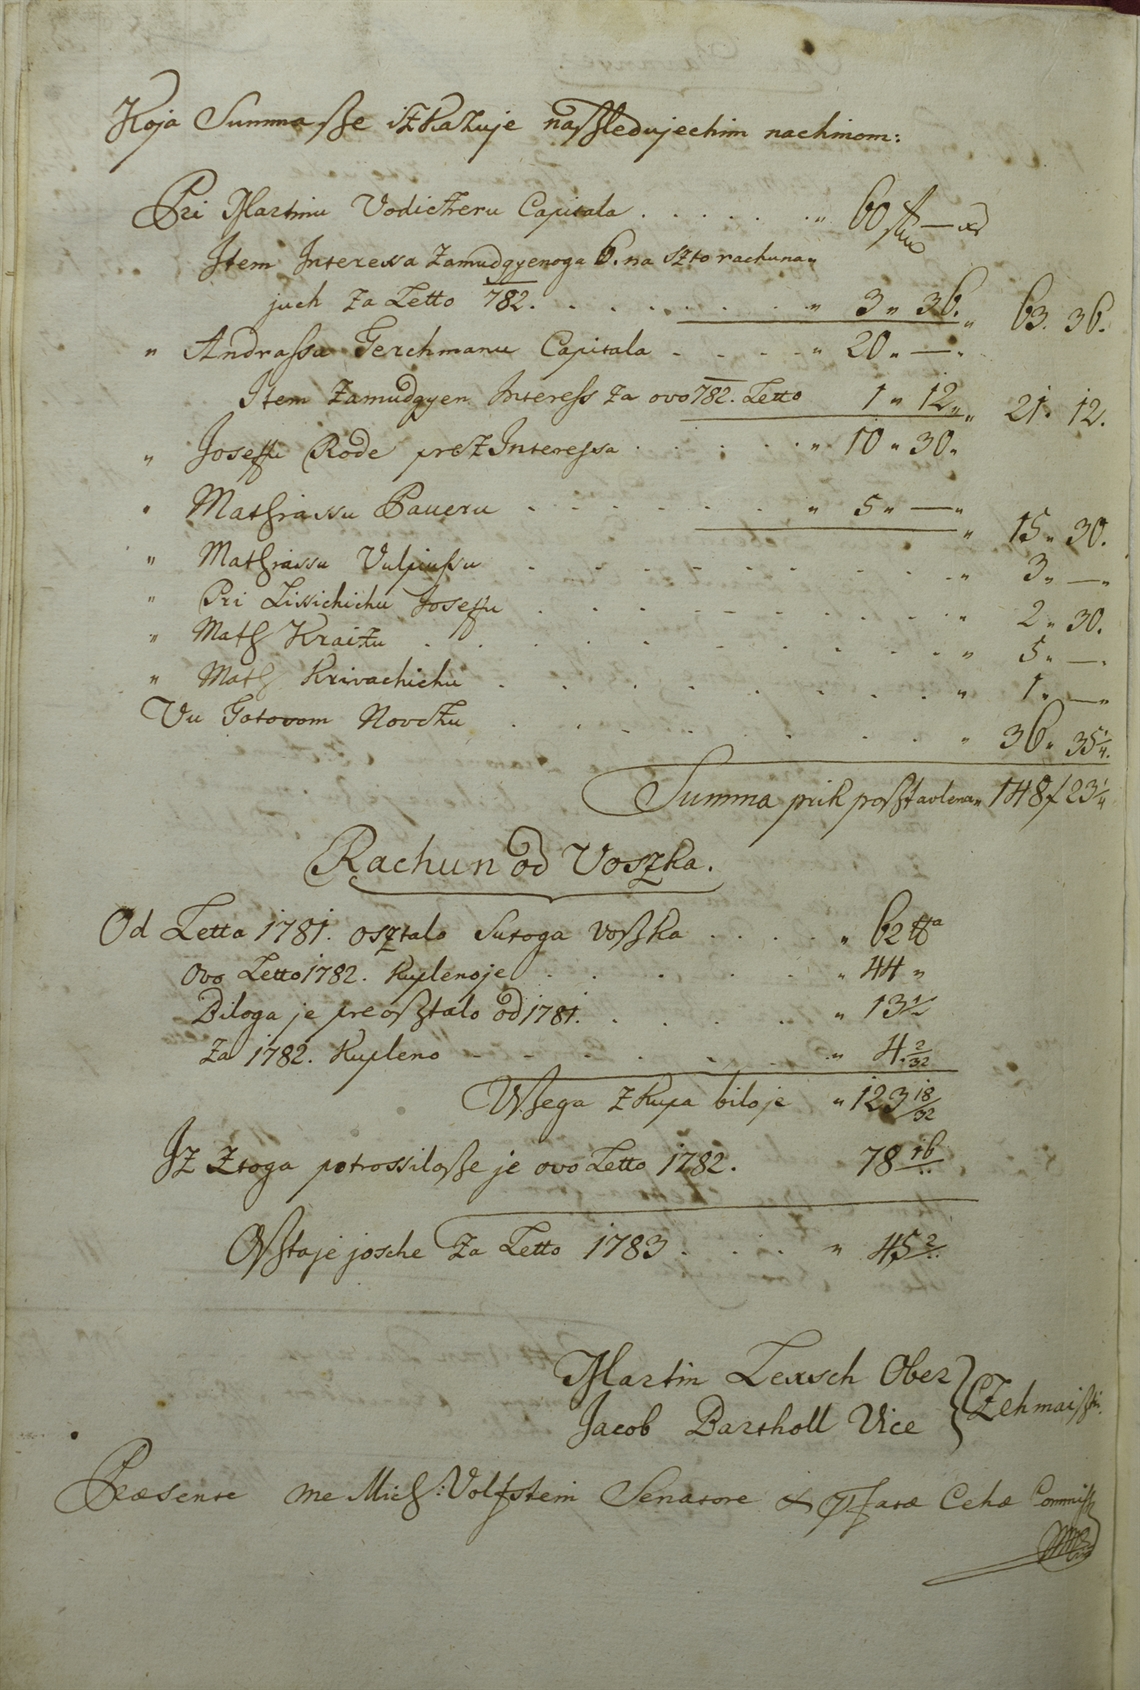 Koja Summa sze izkazuje naszledujechim nachinom:
Pri Martinu Vodiczeru Capitala . . . . . . " 60 f — xr
Item Interessa zamudgyenoga 6. na szto rachuna=
juch za Letto 782. . . . . . . . " 3 " 36. " 63. 36.
" Andrassu Gerchmanu Capitala . . . . " 20 " — "
Item zamudgyen Interess za ovo 782. Letto 1 " 12 " " 21. 12.
" Joseffu Rode prez Interessa . . . . . " 10 " 30.
" Mathiassu Paueru . . . . . . . " 5 " — " " 15 " 30.
" Mathiassu Vulpiussu . . . . . . . . . " 3 " — "
" Pri Lissichichu Joseffu . . . . . . . . . " 2 " 30.
" Math Kraizu . . . . . . . . . . " 5 " — .
" Math Krivachichu . . . . . . . . . " 1 " — "
Vu Gotovom Novczu . . . . . . . . " 36 " 35 1/4.
Summa prik posztavlena " 148 f 23 1/4
Rachun od Voszka.
Od Letta 1781. osztalo sutoga voszka . . . . " 62 ℔a
Ovo Letto 1782. kupleno je . . . . . " 44 "
Biloga je preosztalo od 1781. . . . . . " 13 1/2
Za 1782. kupleno . . . . . . . " 4 2/32
Vszega zkupa bilo je " 123 18/32
Iz ztoga potrossilo sze je ovo Letto 1782. 78 16/..
Osztaje josche za Letto 1783 . . . . " 45 2/..
Martin Lexsch Ober
Jacob Barthold Vice } Zehmaiszt.
Præsente me Mich: Volfstein Senatore & Cehæ Commiss